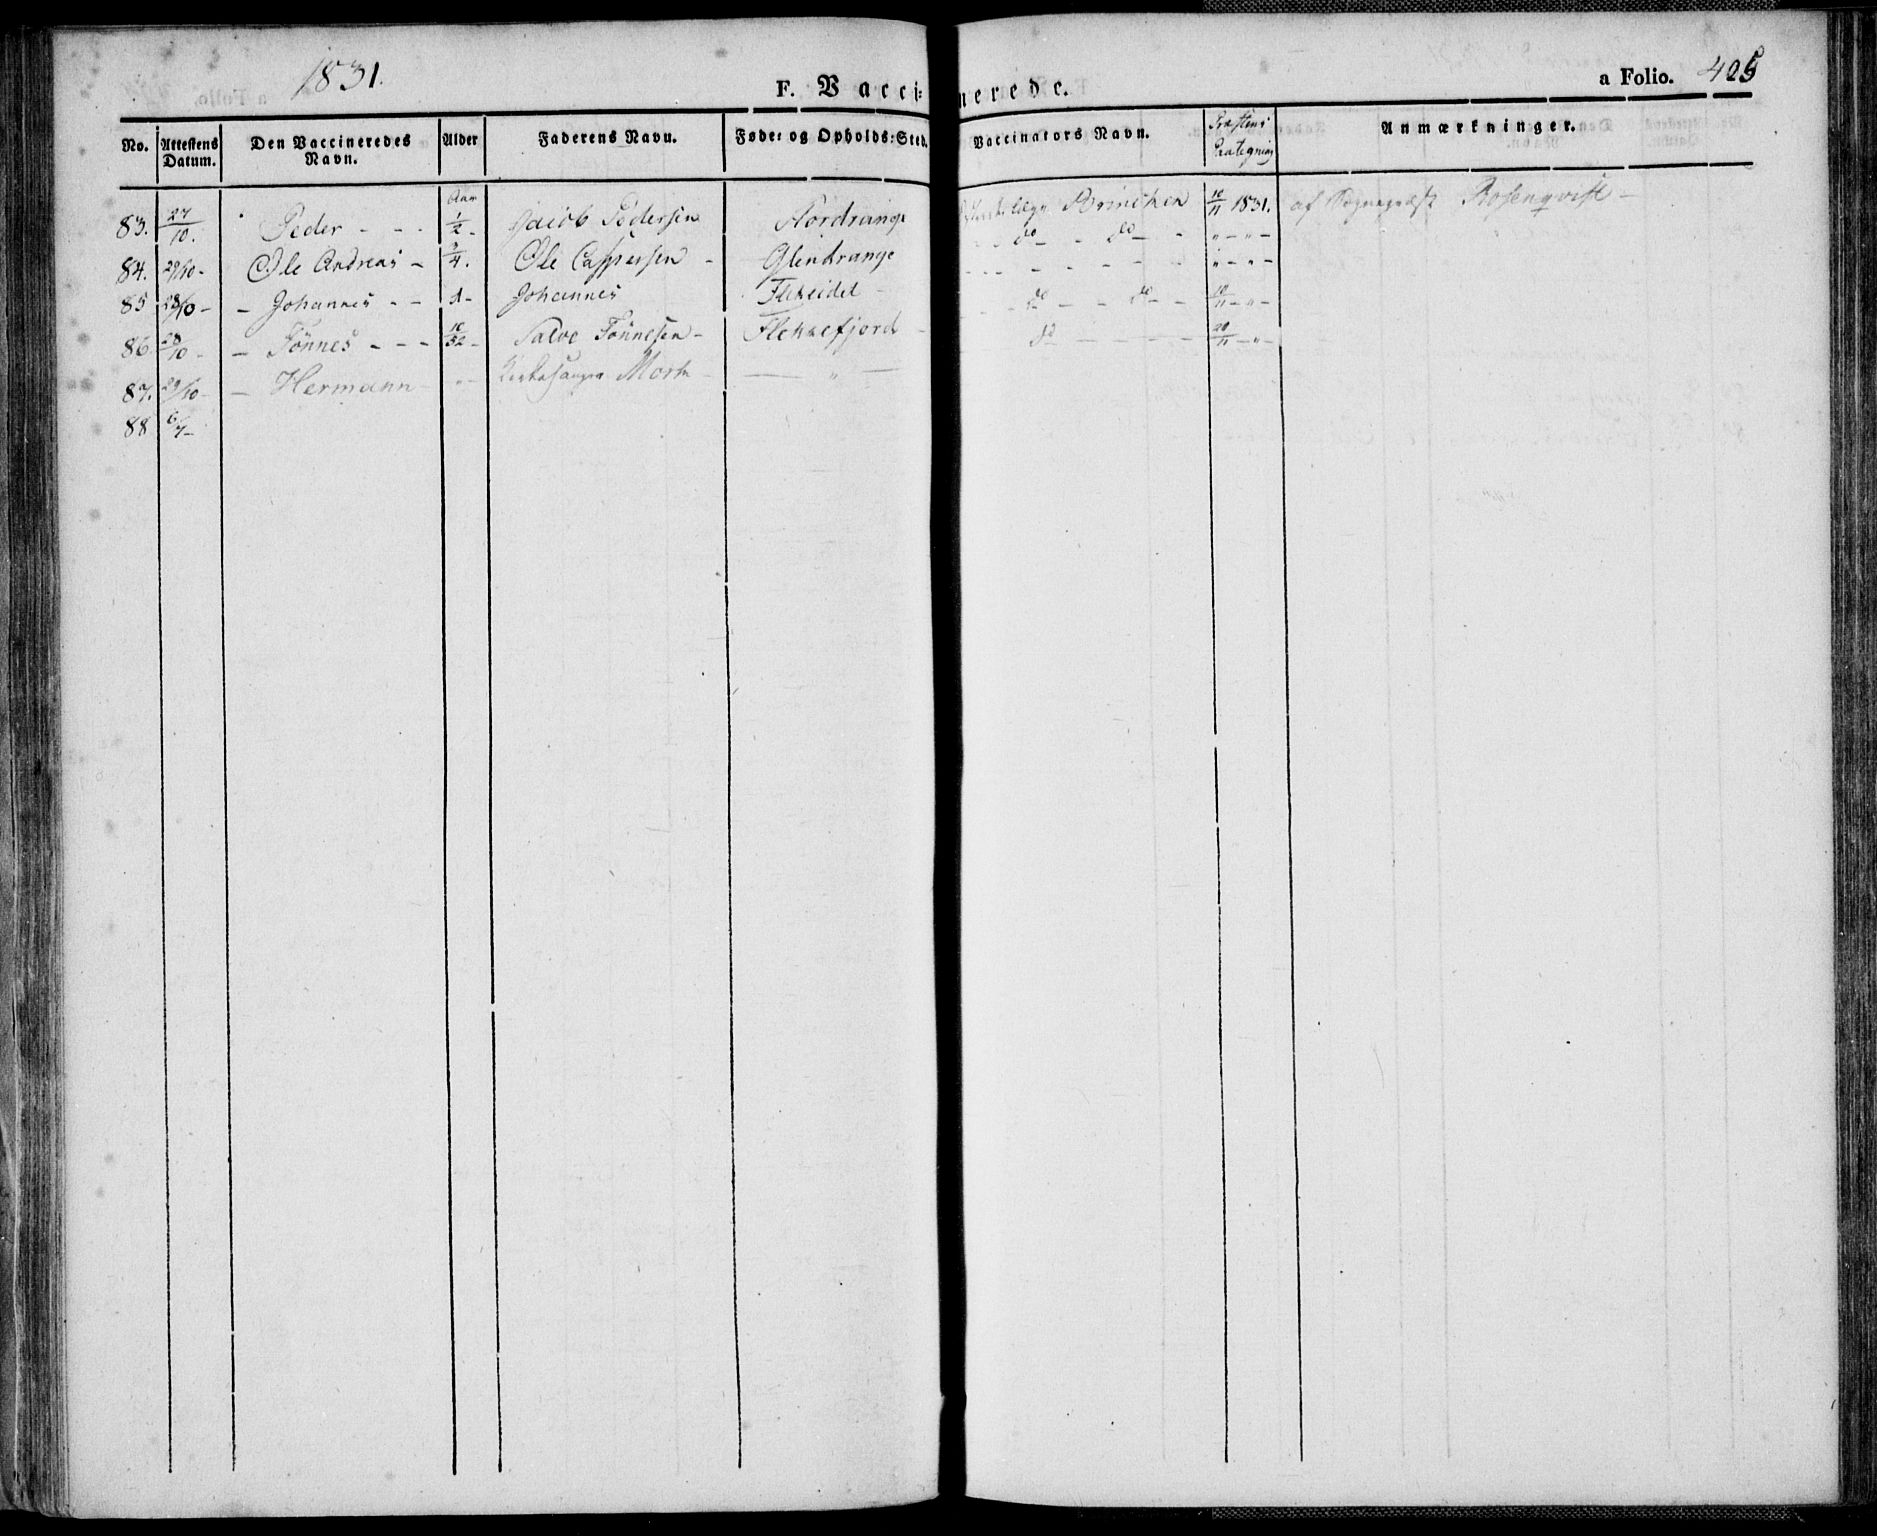 1831. F. Vacci- nerede. a Folio. 405
No. Attestens Datum. Den Vaccineredes Navn. Alder Faderens Navn. Føde- og Opholds-Sted. Vaccinators Navn. Præstens Paategning Anmærkninger.
Aar
83. 27/10. Peder - - - 1/2 - Jacob Pedersen Nordrange Brincken 10/11 1831. af Rosenqvist -
84. 29/10 - Ole Andreas - 3/4. Ole Caspersen - Glendrange do - do - " - " -
85 28/10 - - Johannes - - 1 - Johannes Flikeidet - - - - - " - " -
86. 28/10 - - Tönnes - - - 10/52 - Salve Tönnesen - Flekkefjord do - - do - - 10/11 - " -
87. 29/10 - - Hermann - " - Kirkesanger - " - do - - - - 20/11 - " -
88 6/7 -